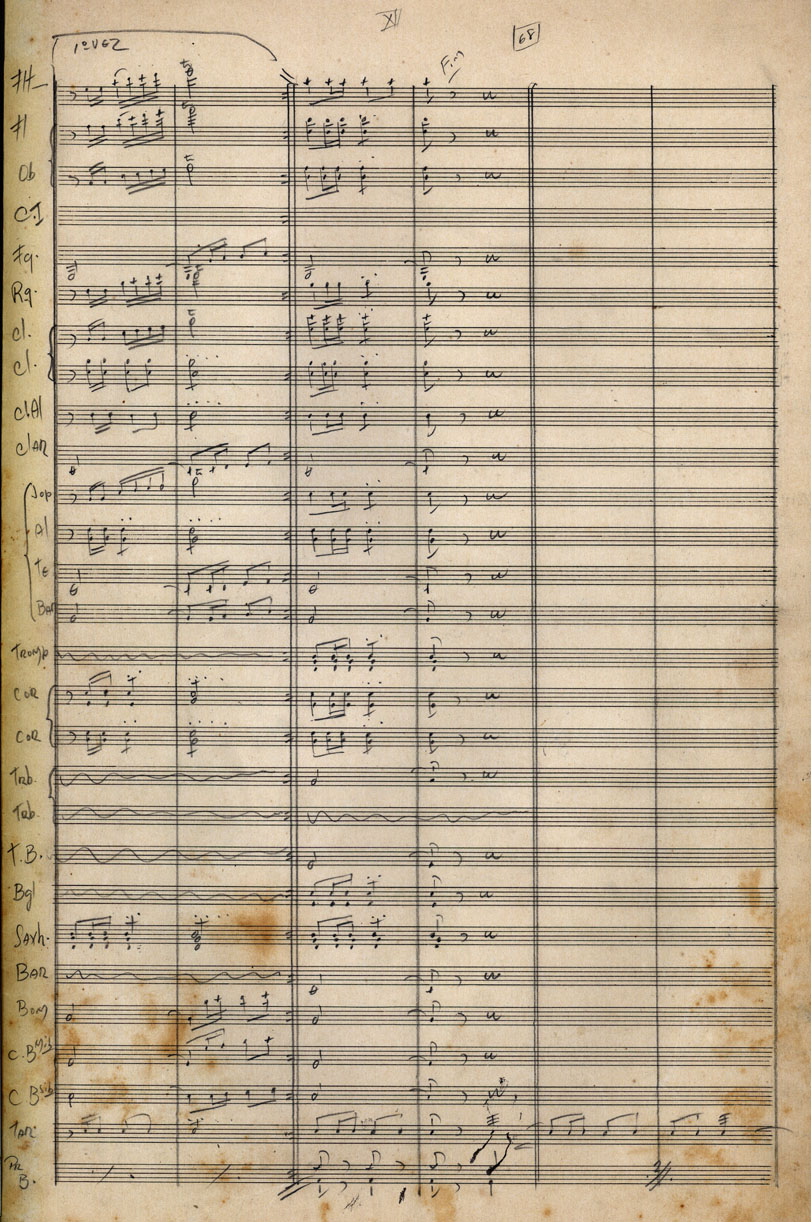 XII
68
1ª VEZ
Fin
Fl
Ob
C.I
Fg.
Rq.
Cl.
Cl.
Cl Al
Cl AR
Sop
Al
Te
Bar
Tromp
Cor
Cor
Trb.
Trb.
T.B.
Bgl
Saxh.
Bar
Bom
C.B Mib
C B Sib
Tar
B.